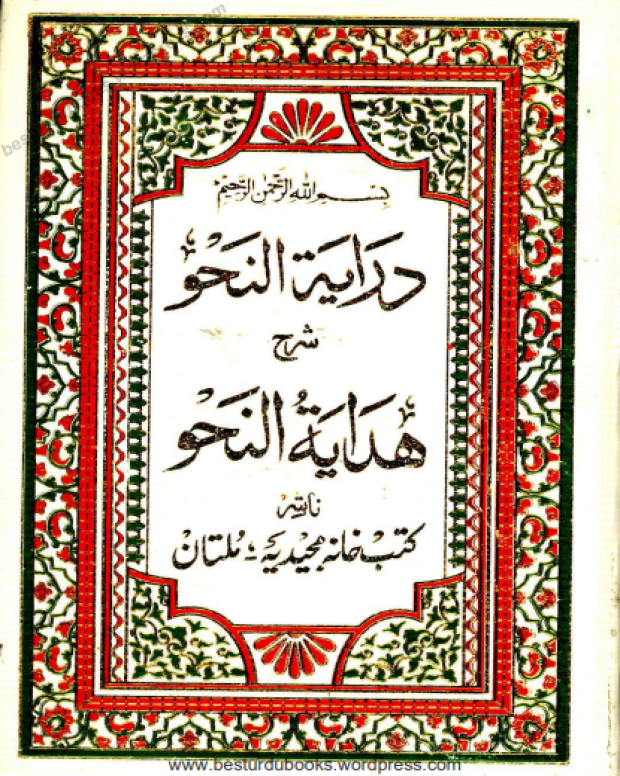 بِسْمِ اللهِ الرَّحْمٰنِ الرَّحِيْمِ
دراية النحو
شرح
هداية النحو
ناشر
کتب خانہ مجیدیہ ؛ ملتان
www.besturdubooks.wordpress.com